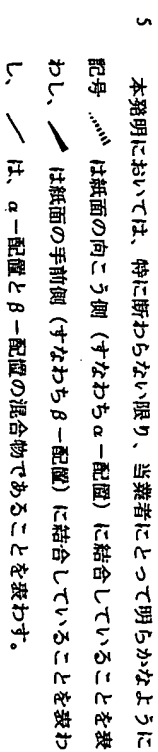 5 本発明においては、特に断わらない限り、当業者にとって明らかなように
記号 は紙面の向こう側(すなわちα-配置)に結合していることを表
わし、 は紙面の手前側(すなわちβ-配置)に結合していることを表わ
し、 は、α-配置とβ-配置の混合物であることを表わす。